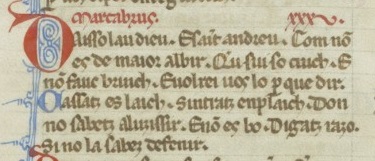 Marcabrus. xxxv.
Daisso lau dieu. E saint andreu. Com nō
es de maior albir. Qui sui so cuich. E
nō fauc bruich. E uolrei uos lo ꝑ que dir.
Cassatz es laich. Sintratz enplaich. Don
no sabetz aluzissir. E nō es bo. Digatz razo.
Si no la sabez defenir.